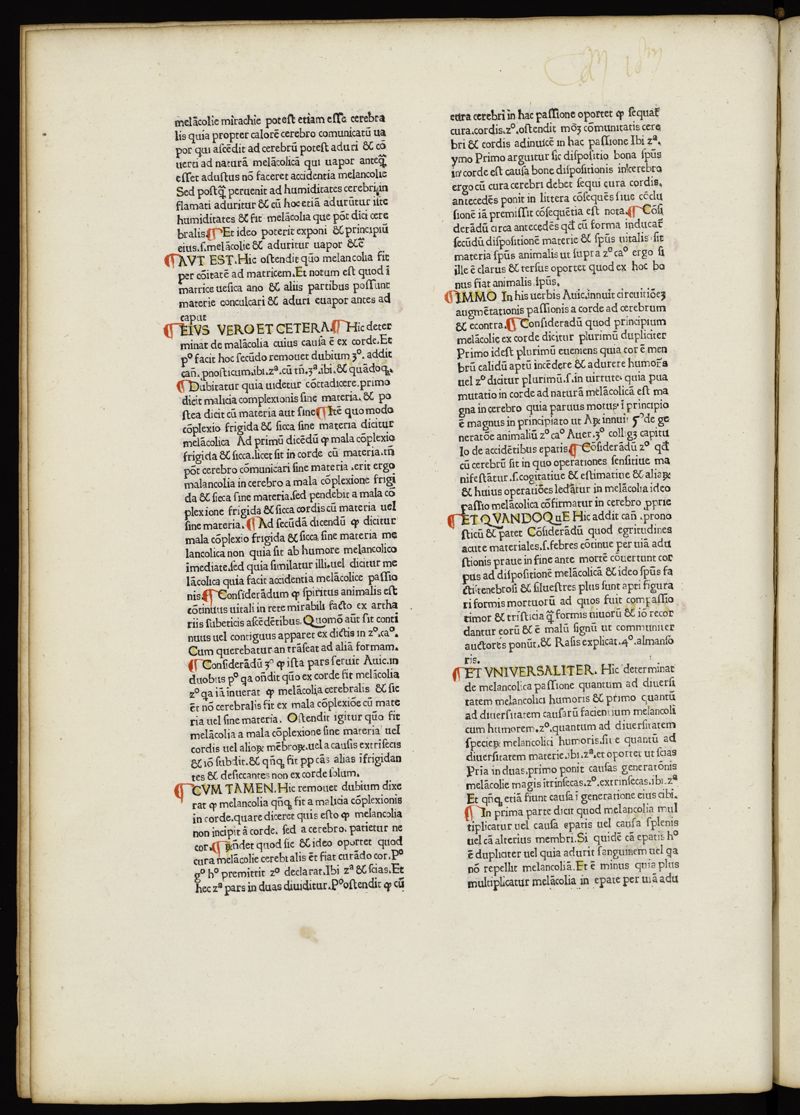 melãcolie mirachie poteſt etiam eſſe cerebra
lis quia propter calorẽ cerebro comunicatũ ua
por qui aſcẽdit ad cerebrũ poteſt aduri & cõ
uerti ad naturã melãcolicã qui uapor anteq̃
eſſet aduſtus nõ faceret accidentia melancolie
Sed poſtq̃ peruenit ad humiditates cerebri,in
flamati aduritur & cũ hoc etiã adurũtur iſte
humiditates & fit melãcolia que põt dici cere
bralis.¶Et ideo poterit exponi & principiũ
eius.ſ.melãcolie & aduritur uapor &c̃
¶AVT EST. Hic oſtendit quõ melancolia fit
per cõitatẽ ad matricem.Et notum eſt quod ĩ
matrice ueſica ano & aliis partibus poſſunt
materie conculcari & aduri euapor antes ad
caput
¶EIVS VERO ET CETERA.¶Hic deter
minat de malãcolia cuius cauſa ẽ ex corde.Et
pº facit hoc ſecũdo remouet dubium 3º. addit
cañ. pnoſticum.ibi.zª.cũ tñ.3ª.ibi.& quãdoq.
¶Dubitatur quia uidetur cõtradicere.primo
dicit malicia complexionis ſine materia. & po
ſtea dicit cũ materia aut ſine¶Itẽ quo modo
cõplexio frigida & ſicca ſine materia dicitur
melãcolica Ad primũ dicẽdũ ꝙ mala cõplexio
frigida & ſicca.licet ſit in corde cũ materia.tñ
põt cerebro cõmunicari ſine materia .erit ergo
malancolia in cerebro a mala cõplexione frigi
da & ſicca ſine materia.ſed pendebit a mala cõ
plexione frigida & ſicca cordis cũ materia uel
ſine materia.¶Ad ſecũdã dicendũ ꝙ dicitur
mala cõplexio frigida & ſicca ſine materia me
lancolica non quia ſit ab humore melancolico
imediate.ſed quia ſimilatur illi.uel dicitur me
lãcolica quia facit accidentia melãcolice paſſio
nis¶Conſiderãdum ꝙ ſpiritus animalis eſt
cõtinuus uitali in rete mirabili facto ex artha
riis ſubeticis aſcẽdẽtibus.Quomõ aũt ſit conti
nuus uel contiguus apparet ex dictis in zº.caº.
Cum querebatur an trãſeat ad aliã formam.
¶Conſiderãdũ 3º ꝙ iſta pars ſeruit Auic.in
duobus pº qa oñdit quo ex corde fit melãcolia
zº qa iã inuerat ꝙ melãcolia cerebralis & ſic
ẽt nõ cerebralis fit ex mala cõplexiõe cũ mate
ria uel ſine materia. Oſtendit igitur quõ fit
melãcolia a mala cõplexione ſine materia uel
cordis uel alioꝝ mẽbroꝝ.uel a cauſis extriſecis
& iõ ſubdit.& qñq fit pp cãs alias ĩfrigidan
tes & deſiccantes non ex corde ſolum.
¶CVM TAMEN. Hic remouet dubium dixe
rat ꝙ melancolia qñq fit a malicia cõplexionis
in corde.quare diceret quis eſto ꝙ melancolia
non incipit à corde. ſed a cerebro. patietur ne
cor.¶Rñdet quod ſic & ideo oportet quod
cura melãcolie cerebralis ẽt fiat curãdo cor.Pº
gº hº premittit zº declarat.Ibi zª & ſcias.Et
hec zª pars in duas diuiditur.Pº oſtendit ꝙ cũ
cura cerebri in hac paſſione oportet ꝙ ſequat̃
cura.cordis.zº.oſtendit mõʒ cõmunitatis cere
bri & cordis adinuicẽ in hac paſſione Ibi zª.
ymo Primo arguitur ſic diſpoſitio bona ſpũs
in corde eſt cauſa bone diſpoſitionis in cerebro
ergo cũ cura cerebri debet ſequi cura cordis.
antecedẽs ponit in littera cõſequẽs ſiue cõclu
ſionẽ iã premiſſit cõſequẽtia eſt nota.¶Cõſi
derãdũ circa antecedẽs qd̃ cũ forma inducat̃
ſecũdũ diſpoſitionẽ materie & ſpũs uitalis ſit
materia ſpũs animalis ut ſupra zº caº ergo ſi
ille ẽ clarus & terſus oportet quod ex hoc bo
nus fiat animalis ſpũs.
¶IMMO In his uerbis Auic.innuit circuitiõeʒ
augmẽtationis paſſionis a corde ad cerebrum
& econtra.¶Conſiderãdũ quod principium
melãcolie ex corde dicitur plurimũ dupliciter
Primo ideſt plurimũ eueniens quia cor ẽ mem
brũ calidũ aptũ incẽdere & adurere humores
uel zº dicitur plurimũ.ſ.in uirtute quia pua
mutatio in corde ad naturã melãcolicã eſt ma
gna in cerebro quia paruus motus ĩ principio
ẽ magnus in principiato ut Aꝝ innuit 5º de ge
neratõe animaliũ zº caº Auer.3º collʒ capitu
lo de accidẽtibus epatis¶Cõſiderãdũ zº qd̃
cũ cerebrũ ſit in quo operationes ſenſitiue ma
nifeſtãtur.ſ.cogitatiue & eſtimatiue & aliaꝝ
& huius operatiões ledãtur in melãcolia ideo
paſſio melãcolica cõfirmatur in cerebro ꝓprie
¶ET QVANDOQuE Hic addit cañ .prono
ſticũ & patet Cõſiderãdũ quod egritudines
acute materiales.ſ.febres cõtinue per uiã adu
ſtionis praue in fine ante mortẽ cõuertunt cor
pus ad diſpoſitionẽ melãcolicã & ideo ſpũs fa
cti tenebroſi & ſilueſtres plus ſunt apti figura
ri formis mortuorũ ad quos fuit compaſſio
timor & triſticia q̃ formis uiuorũ & iõ recor
dantur eorũ & ẽ malũ ſignũ ut communiter
auctores ponũt.& Raſis explicat.4º.almanſo
ris.
¶ET VNIVERSALITER. Hic determinat
de melancolica paſſione quantum ad diuerſi
tatem melancolici humoris & primo quantũ
ad diuerſitatem cauſarũ facientium melancoli
cum humorem.zº.quantum ad diuerſitatem
ſpecieꝝ melancolici humoris.ſiue quantũ ad
diuerſitatem materie.ibi.zª.et oportet ut ſcias
Pria in duas.primo ponit cauſas generatõnis
melãcolie magis itrinſecas.zº.extrinſecas.ibi.zª
Et qñq etiã fiunt cauſa ĩ generatione eius cibi.
¶In prima parte dicit quod melancolia mul
tiplicatur uel cauſa epatis uel cauſa ſplenis
uel cã alterius membri.Si quidẽ cã epatis hº
ẽ dupliciter uel quia adurit ſanguinem uel qa
nõ repellit melancoliã.Et ẽ minus quia plus
multiplicatur melãcolia in epate per uiã adu